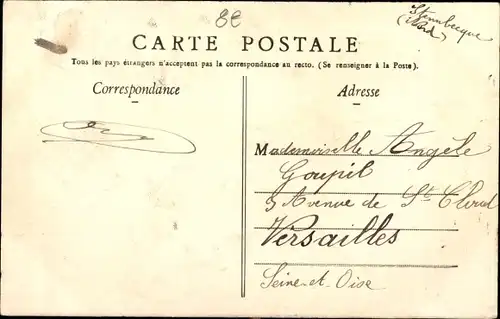 8E
Steenbecque
(Nord)
CARTE POSTALE
Tous les pays étrangers n'acceptent pas la correspondance au recto. (Se renseigner à la Poste).
Correspondance
Adresse
Mademoiselle Angèle
Goupil
9 Avenue de St Cloud
Versailles
Seine-et-Oise